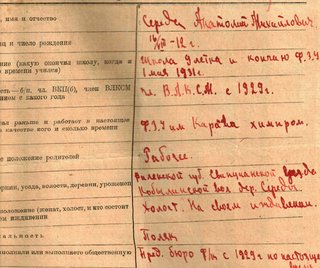 , имя и отчество
Середа Анатолий Михайлович,
яц и число рождения
-12 г.
ние (какую окончил школу, когда и
о времени учился)
Школа 7летка и кончаю Ф.З.У
1 мая 1931г.
сть—б/п, чл. ВКП(б), член ВЛКСМ
с какого года
чл. В.Л.К.С.М. с 1929г.
тал раньше и работает в настоящее
качестве кого и сколько времени
Ф.З.У им. химпром.
ое положение родителей
Рабочие.
рния, уезда, волости, деревни, уроженец
Виленской губ. уезда
вол. дер. Середы.
положение (женат, холост, и кто состоит
ем иждивении
Холост. На своем иждивении.
альность
Поляк
полняли или выполняет общественную
Пред. бюро с 1929г по настоящее